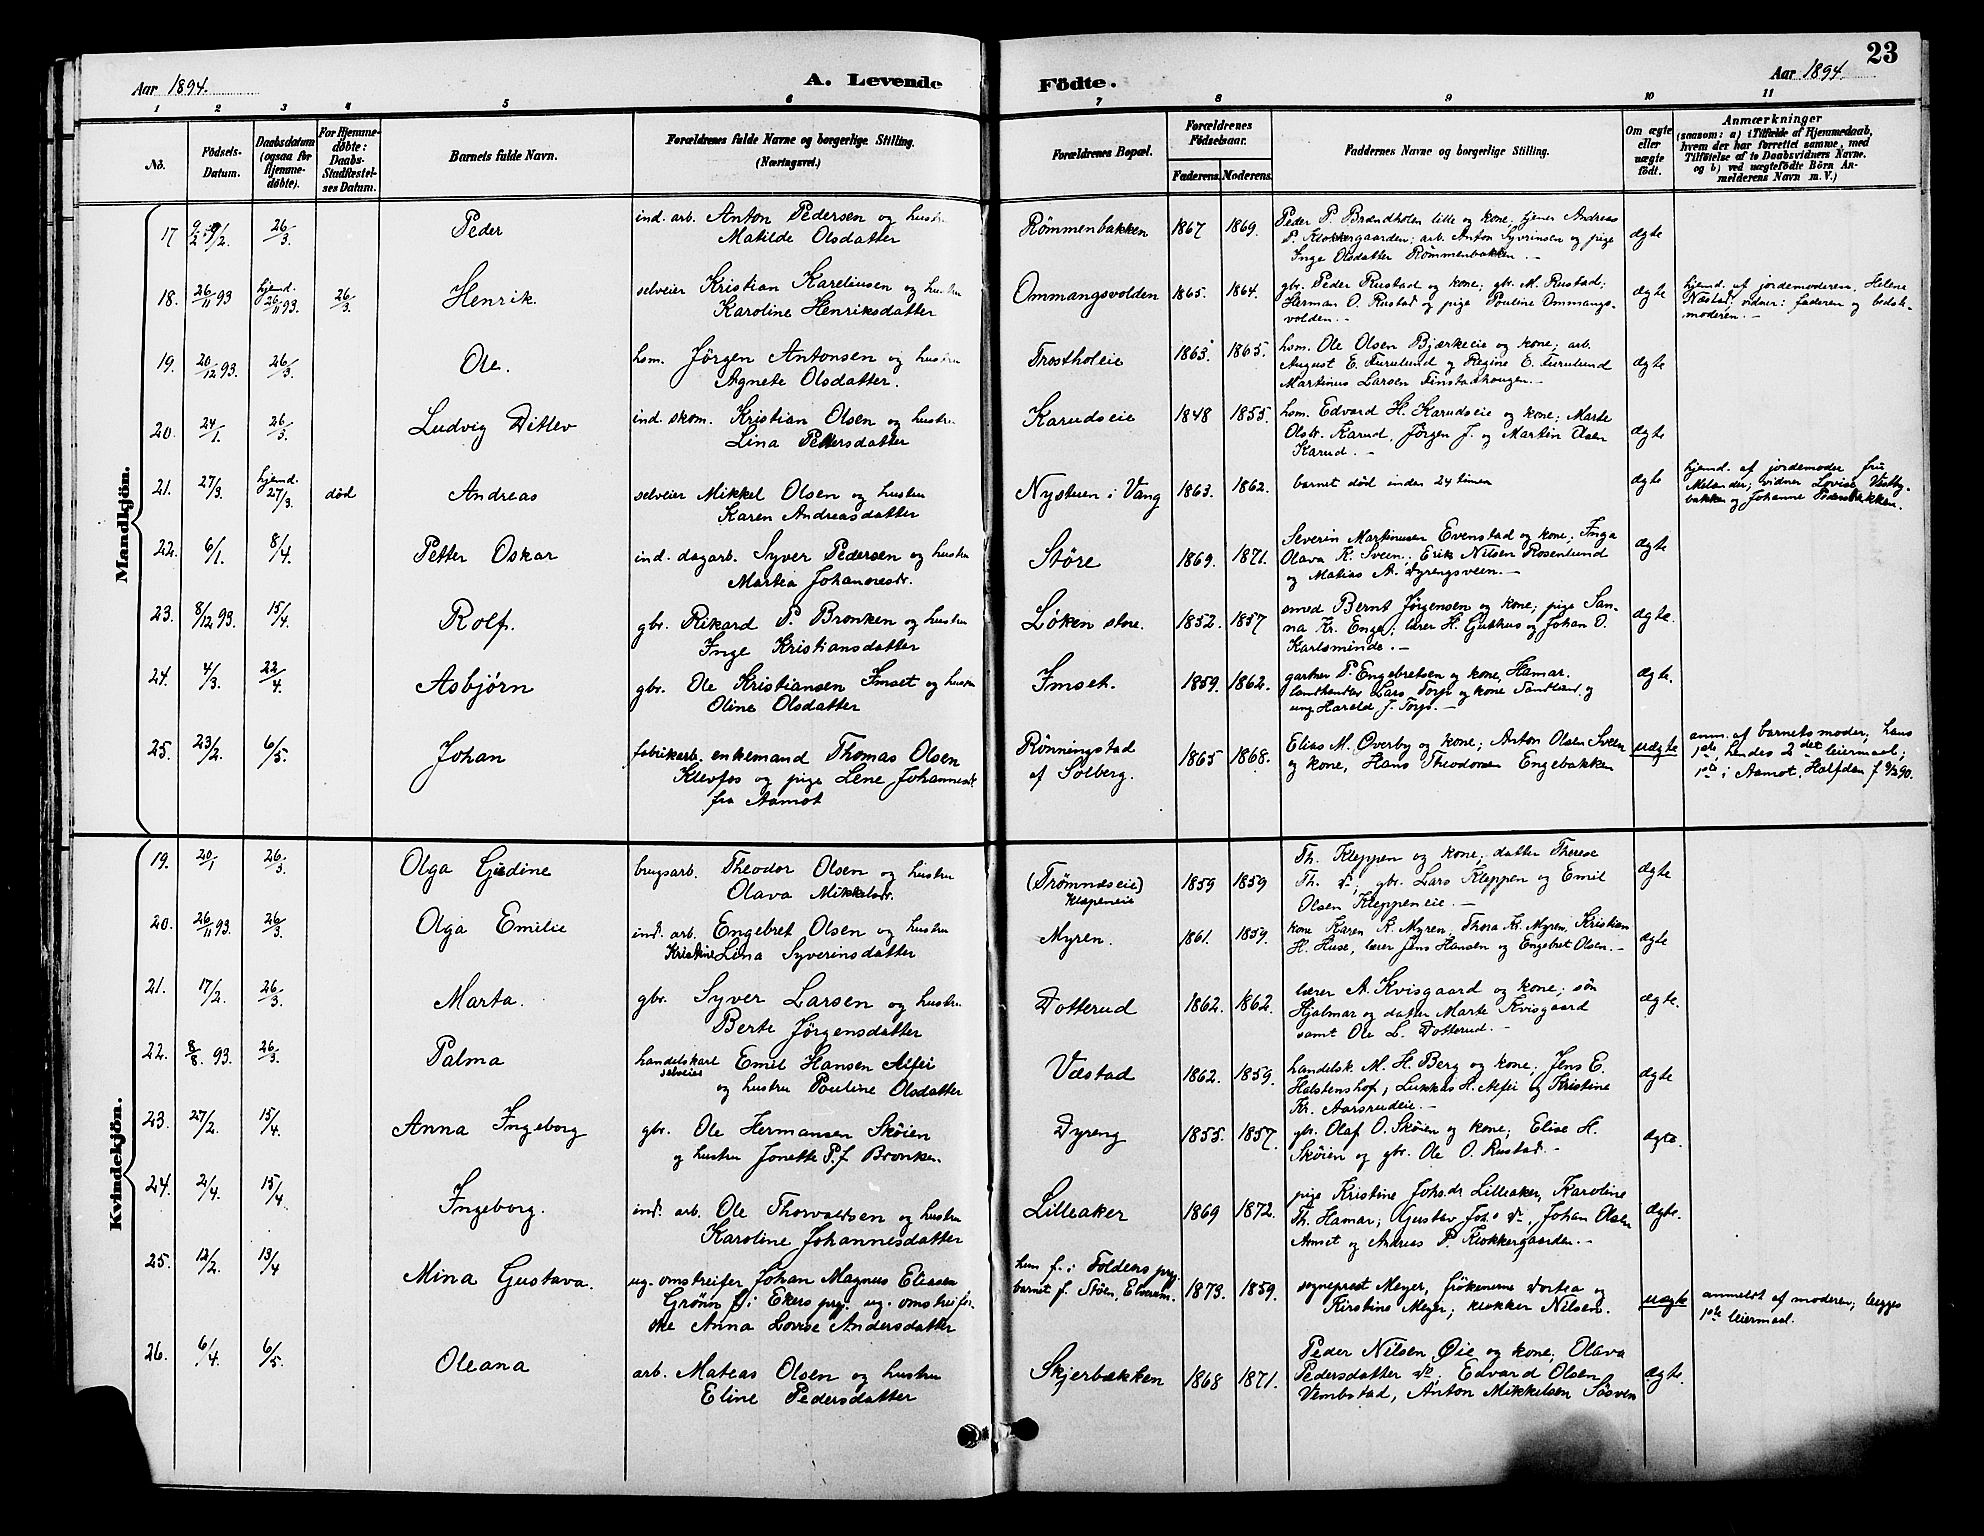 23
Aar 1894.
A. Levende Födte.
Aar 1894.
1 2 3 4 5 6 7 8 9 10 11
No.
Födsels-Datum.
Daabsdatum (ogsaa for Hjemme-döbte).
For Hjemme-döbte: Daabs-Stadfæstel-ses Datum.
Barnets fulde Navn.
Forældrenes fulde Navne og borgerlige Stilling. (Næringsvei.)
Forældrenes Bopæl.
Forældrenes Födselsaar.
Faderens. Moderens.
Faddernes Navne og borgerlige Stilling.
Om ægte eller uægte födt.
Anmærkninger
(saasom: a) i Tilfælde af Hjemmedaab, hvem der har forrettet samme, med Tilföielse af to Daabsvidners Navne, og b) ved uægtefödte Börn Anmelderens Navn m. V.)
Mandkjön.
17 9/2 26/3. Peder
ind. arb. Anton Pedersen og hustru
Matilde Olsdatter
Rømmenbakken 1867 1869.
Peder P. Brændholen lille og kone, tjener Andreas
P. Klokkergaarden; arb. Anton Syverinsen og pige
Inge Olsdatter Rømmenbakken. –
ægte
18. 26/11 93 hjemd. 26/11 93. 26/3 Henrik
selveier Kristian Kareliusen og hustru
Karoline Henriksdatter
Ommangsvolden 1865. 1864.
gbr. Peder Rustad og kone; gbr. M. Rustad;
Herman O. Rustad og pige Pauline Ommangs-
volden. –
ægte
hjemd. af jordemoderen Helene
Næstad; vidner: faderen og bedste-
moderen. –
19. 20/12 93. 26/3. Ole.
hsm. Jörgen Antonsen og hustru
Agnete Olsdatter.
Trostholeie 1863. 1865.
hsm. Ole Olsen Bjærkeeie og kone; arb.
August E. Furulund og Regine E. Furulund
Martinus Larsen Finstadhaugen. –
ægte
20. 24/1. 26/3. Ludvig Ditlev
ind. skom. Kristian Olsen og hustru
Lina Pedersdatter
Karudseie 1848 1855.
hsm. Edvard H. Karudseie og kone; Marte
Olsdr. Karud, Jörgen J. og Martin Olsen
Karud. –
ægte
21. 27/3. hjemd. 27/3. död Andreas
selveier Mikkel Olsen og hustru
Karen Andreasdatter
Nystuen i Vang 1863. 1862.
barnet död inden 24 timer
ægte
hjemd. af jordemoder fru
Melander; vidner Lovise
bakken og Johanne
22. 6/1. 8/4. Petter Oskar
ind. dagarb. Syver Pedersen og hustru
Martea Johannesdr.
Störe 1869. 1871.
Severin Martinusen Evenstad og kone; Inga
Olava K. Sveen; Erik Nilsen Rosenlund
og Matias A. Dyrengsveen. –
ægte
23. 8/12 93. 15/4. Rolf.
gbr. Rikard P. Bronken og hustru
Inge Kristiansdatter
Løken store. 1852. 1857
smed Bernt Jørgensen og kone; pige San-
na Kr. Enge; lærer H. Guthus og Johan O.
Karlsminde. –
ægte.
24. 4/3. 22/4. Asbjörn
gbr. Ole Kristiansen Imset og hustru
Oline Olsdatter
Imset. 1859. 1862.
gartner P. Engebretsen og kone, Hamar.
landhandler Lars Torp og kone Sandlund, og
ung. Harald J. Torp. –
ægte.
25. 23/2. 6/5. Johan
fabrikarb. enkemand Thomas Olsen
Klevfos og pige Lene Johannesdr.
fra Aamot
Rönningstad
af Solberg. 1865 1868.
Elias M. Överby og kone; Anton Olsen Sveen
og kone, Hans Theodorsen Engebakken
uægte
anm. af barnets moder, hans
1ste, hendes 2det leiermaal;
1ste i Aamot, Halfdan f. 90.
Kvindekjön.
19. 20/1 26/3. Olga Gjedine
brugsarb. Theodor Olsen og hustru
Olava Mikkelsdr.
(Trømnæseie)
Klæpeneie 1859 1859
Th. Kleppen og kone; datter Therese
Th. do; gbr. Lars Kleppen og Emil
Olsen Kleppeneie. –
ægte
20. 26/11 93. 26/3. Olga Emilie
ind. arb. Engebret Olsen og hustru
Kristine Lina Syverinsdatter
Myren. 1861. 1859.
kone Karen K. Myren, Thora K. Myren, Kristian
H. Huse, lærer Jens Hansen og Engebret Olsen. –
ægte
21. 17/2. 26/3. Marta.
gbr. Syver Larsen og hustru
Berte Jörgensdatter
Dotterud 1862. 1862
lærer A. Kvisgaard og kone; sön
Hjalmar og datter Marte Kvisgaard
samt Ole L. Dotterud. –
ægte.
22. 8/8. 93. 26/3. Palma
handelskarl selveier Emil Hansen Alfei
og hustru Pauline Olsdatter
Væstad 1862. 1859.
handelsk. M. H. Berg og kone; Jens E.
Halstenshof; Lukkas H. Alfei og Kristine
Kr. Aarsrudeie. –
ægte
23. 27/2. 15/4. Anna Ingeborg
gbr. Ole Hermansen Sköien
og hustru Jonette P. f Bronken.
Dyreng 1855. 1857.
gbr. Olaf O. Sköien og kone; Elise H.
Sköien og gbr. Ole O. Rustad. –
ægte.
24. 2/4. 15/4 Ingeborg.
ind. arb. Ole Thorvaldsen og hustru
Karoline Johannesdatter
Lilleaker 1869 1872.
pige Kristine Johsdr. Lilleaker, Karoline
Th. Hamar; Gustav Johs do, Johan Olsen
og Andreas P. Klokkergaarden. –
ægte.
25. 12/2. 13/4 Mina Gustava.
ug. omstreifer Johan Magnus Eliasen
Grönn f. i Ekers prg. ug. omstreifer-
ske Anna Lovise Andersdatter
hun f. i Foldens prg.
barnet f. Stöen, Elverum. 1873. 1859.
sogneprest Meyer, frökenerne Dortea og
Kirstine Meyer; klokker Nilsen.
uægte
anmeldt af moderen; begges
1ste leiermaal.
26. 6/4. 6/5. Oleana
arb. Matias Olsen og hustru
Eline Pedersdatter
Skjerbækken 1868 1871.
Peder Nilsen Øie og kone, Olava
Pedersdatter do, Edvard Olsen
Vembstad, Anton Mikkelsen Såsveen
ægte.